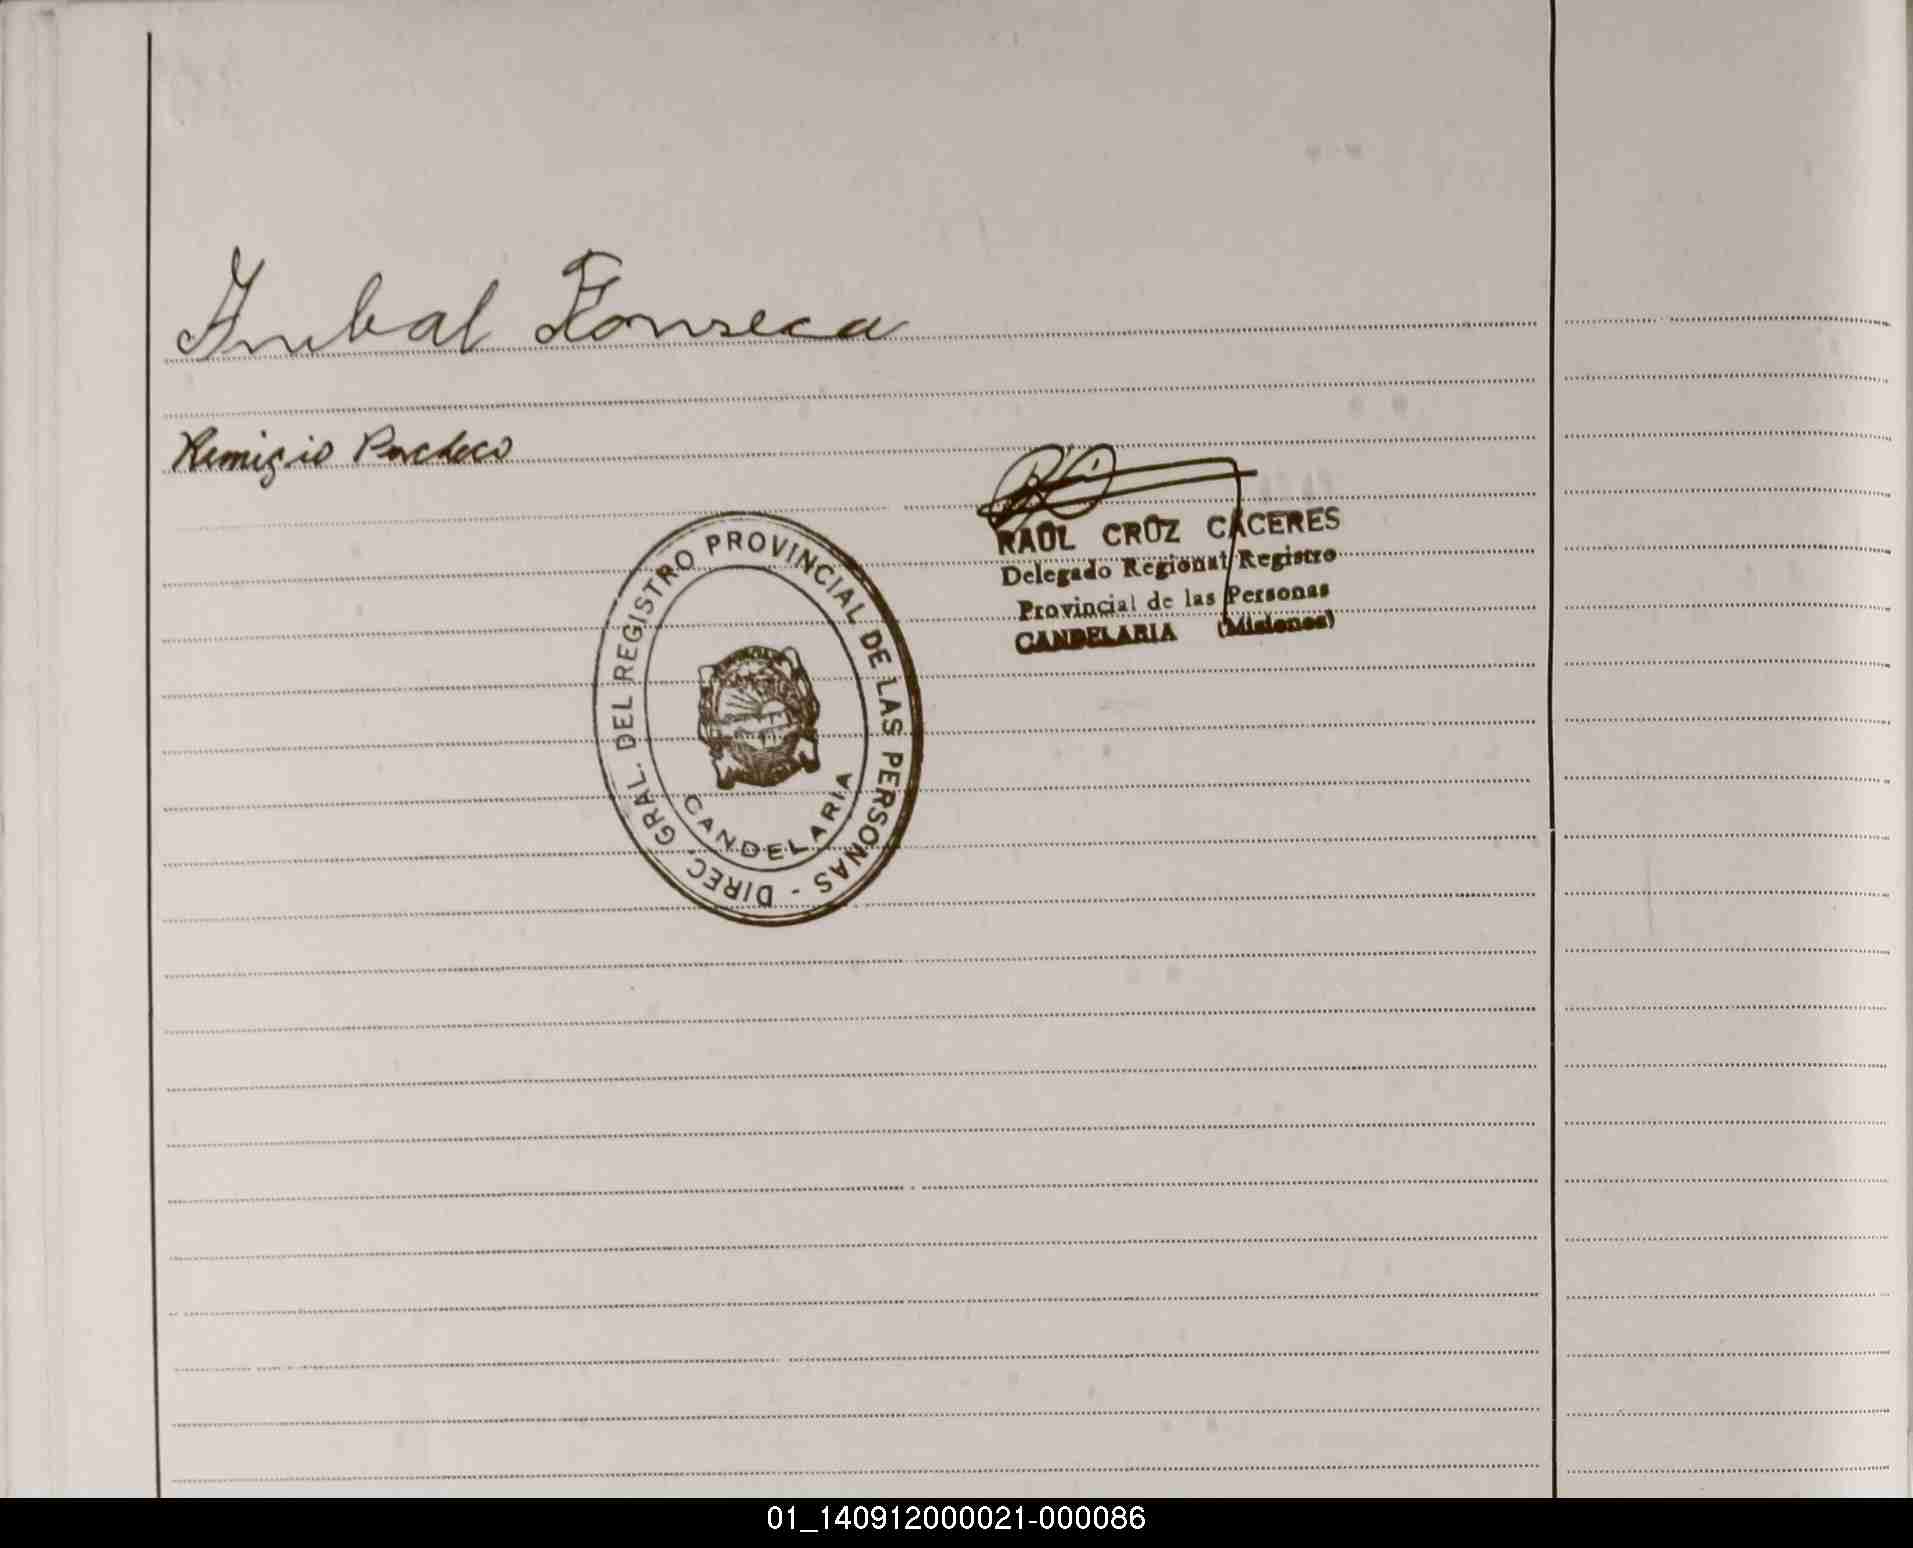 Anibal Fonseca
Remigio Pacheco
RAUL CRUZ CACERES
Delegado Regional Registro
Provincial de las Personas
CANDELARIA (Misiones)
DIREC. GRAL. DEL REGISTRO PROVINCIAL DE LAS PERSONAS -
CANDELARIA
01_140912000021-000086